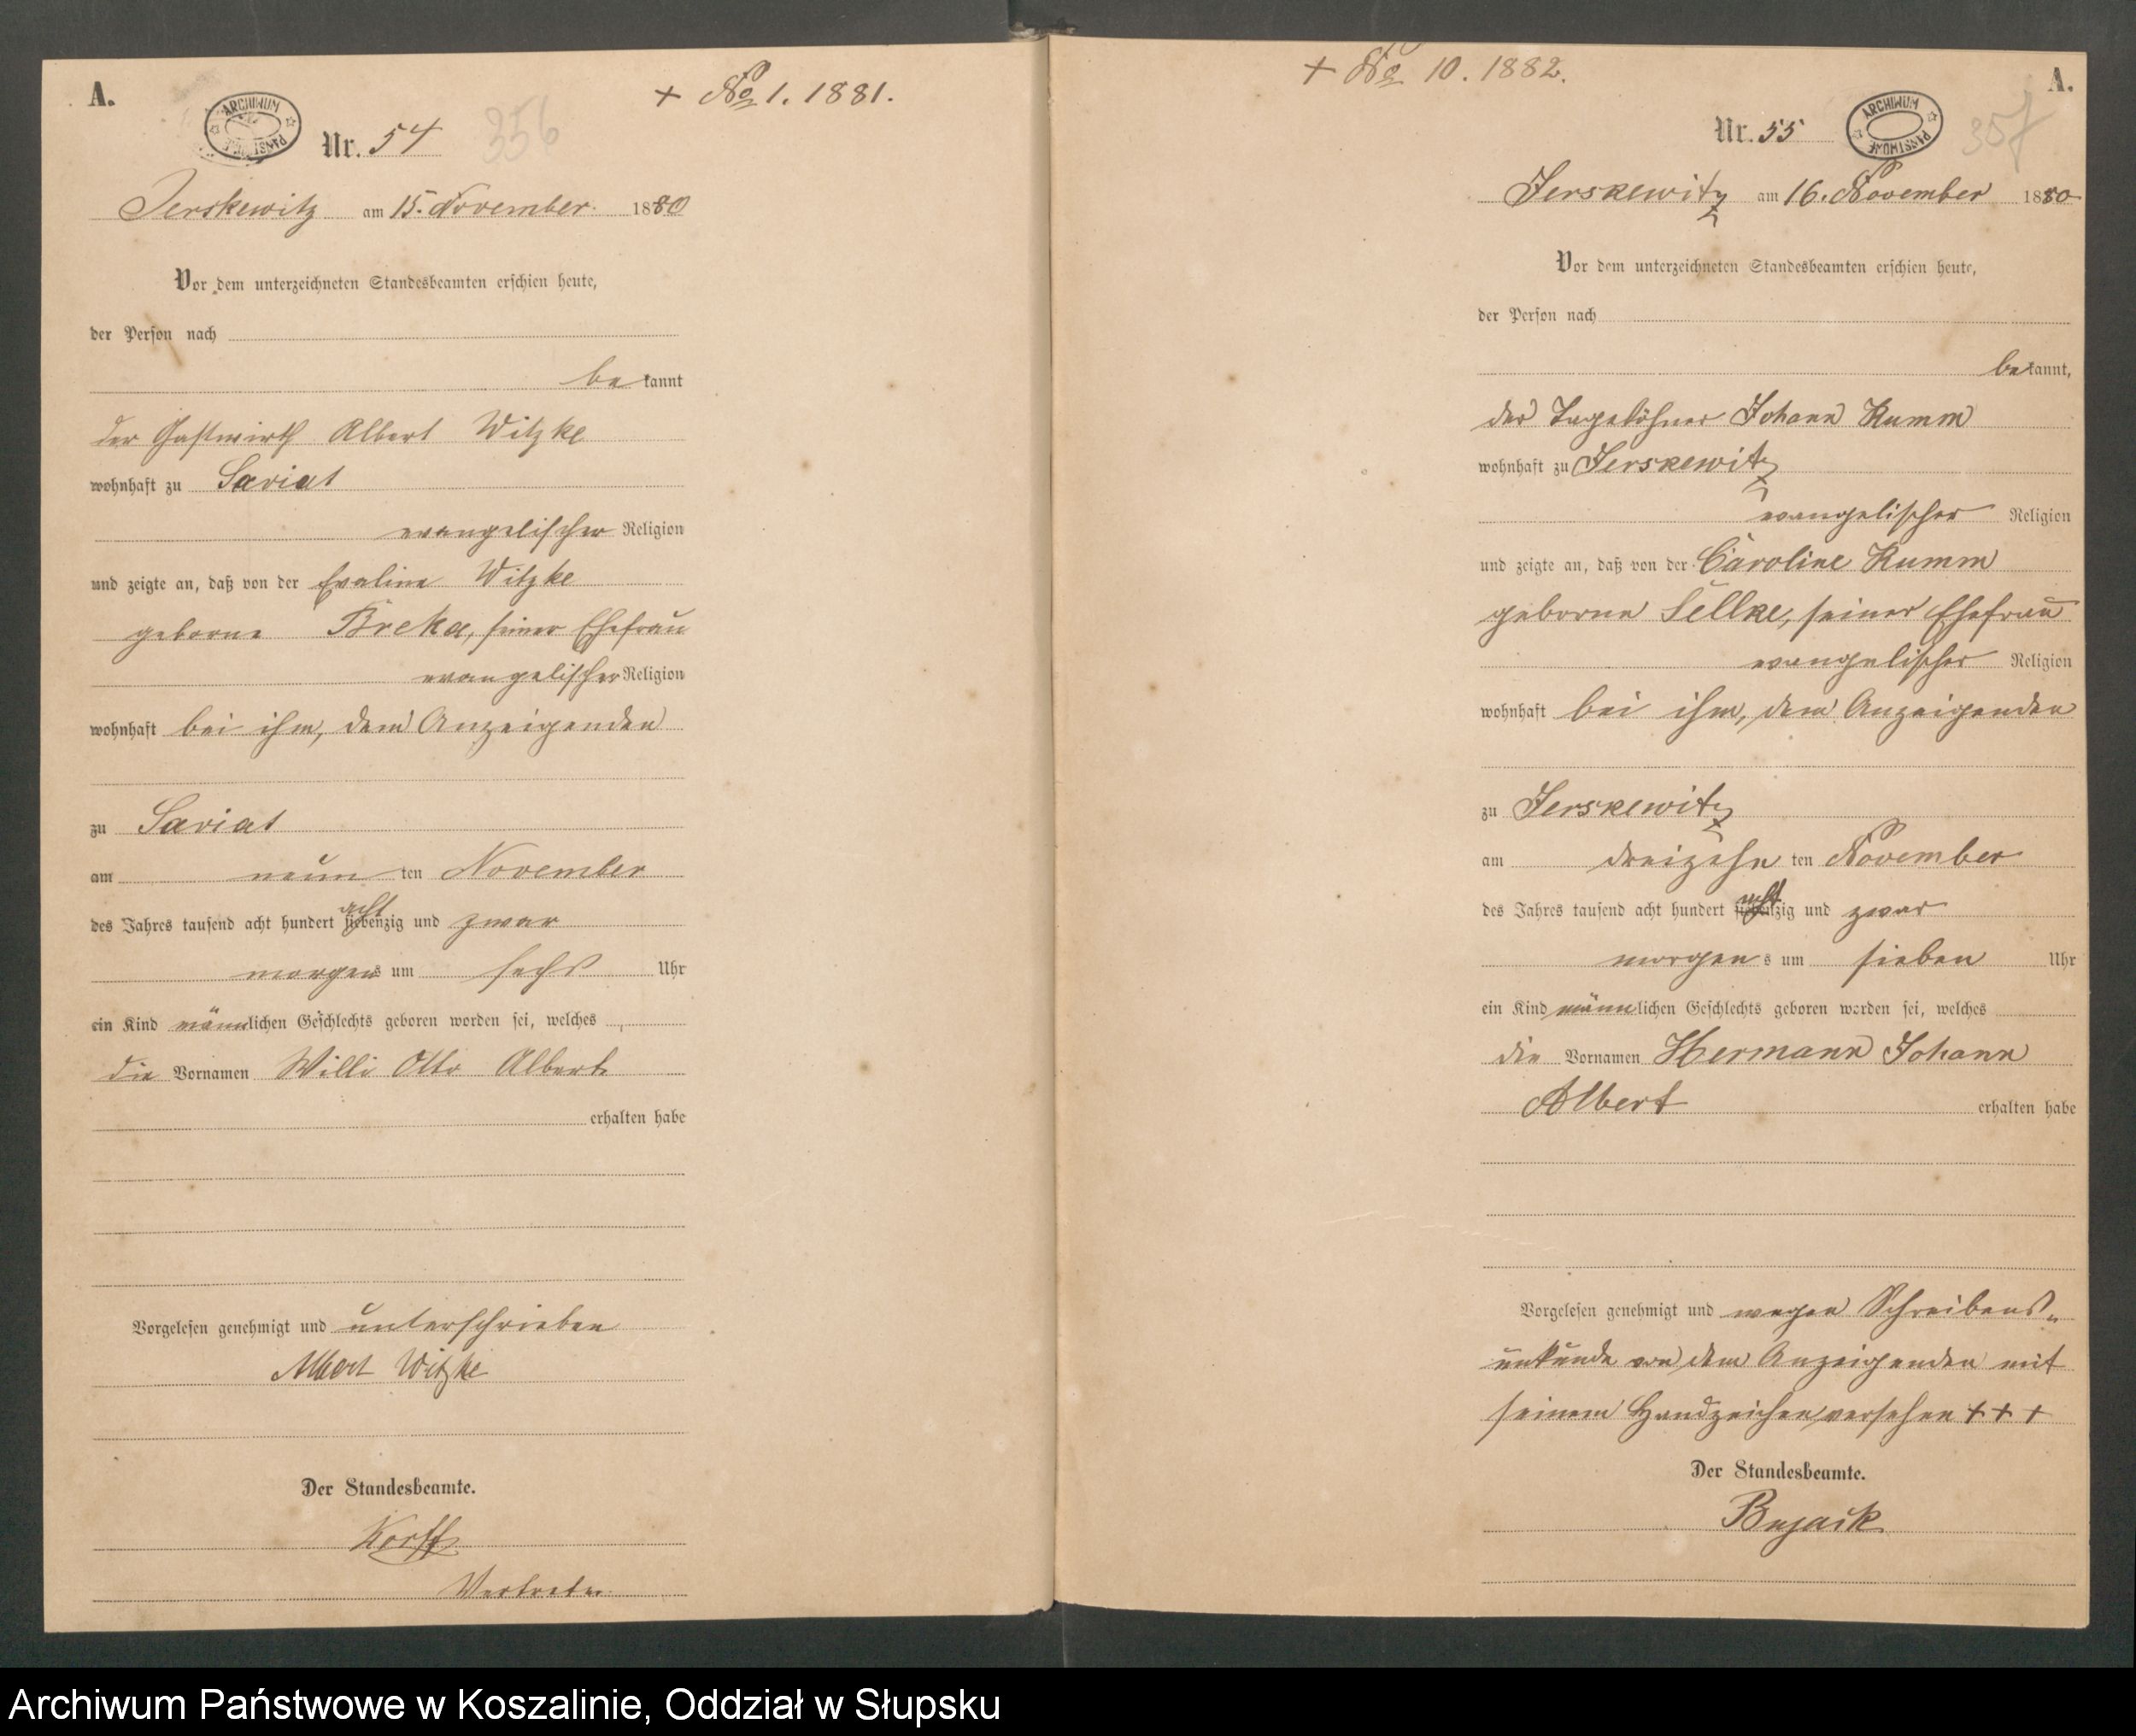 A.
+ No 1. 1881.
ARCHIWUM PAŃSTWOWE
Nr. 54
356
Jerskewitz am 15. November 1880
Vor dem unterzeichneten Standesbeamten erschien heute,
der Person nach
bekannt
der Gastwirth Albert Witzke
wohnhaft zu Soviat
evangelischer Religion
und zeigte an, daß von der Eveline Witzke
geborne Breka, seiner Ehefrau
evangelischer Religion
wohnhaft bei ihm, dem Anzeigenden
zu Soviat
am neun ten November
acht
des Jahres tausend acht hundert siebenzig und zwar
morgens um sechs Uhr
ein Kind männlichen Geschlechts geboren worden sei, welches
die Vornamen Willi Otto Albert
erhalten habe
Vorgelesen genehmigt und unterschrieben
Albert Witzke
Der Standesbeamte.
Korff
Vertreter
+ No 10. 1882.
A.
Nr. 55
ARCHIWUM PAŃSTWOWE
357
Jerskewitz am 16. November 1880
Vor dem unterzeichneten Standesbeamten erschien heute,
der Person nach
bekannt,
der Tagelöhner Johann Kumm
wohnhaft zu Jerskewitz
evangelischer Religion
und zeigte an, daß von der Caroline Kumm
geborne Sellke, seiner Ehefrau
evangelischer Religion
wohnhaft bei ihm, dem Anzeigenden
zu Jerskewitz
am dreizehn ten November
acht
des Jahres tausend acht hundert siebenzig und zwar
morgens um sieben Uhr
ein Kind männlichen Geschlechts geboren worden sei, welches
die Vornamen Hermann Johann
Albert erhalten habe
Vorgelesen genehmigt und wegen Schreibens-
unkunde von dem Anzeigenden mit
seinem Handzeichen versehen + + +
Der Standesbeamte.
Bujack
Archiwum Państwowe w Koszalinie, Oddział w Słupsku